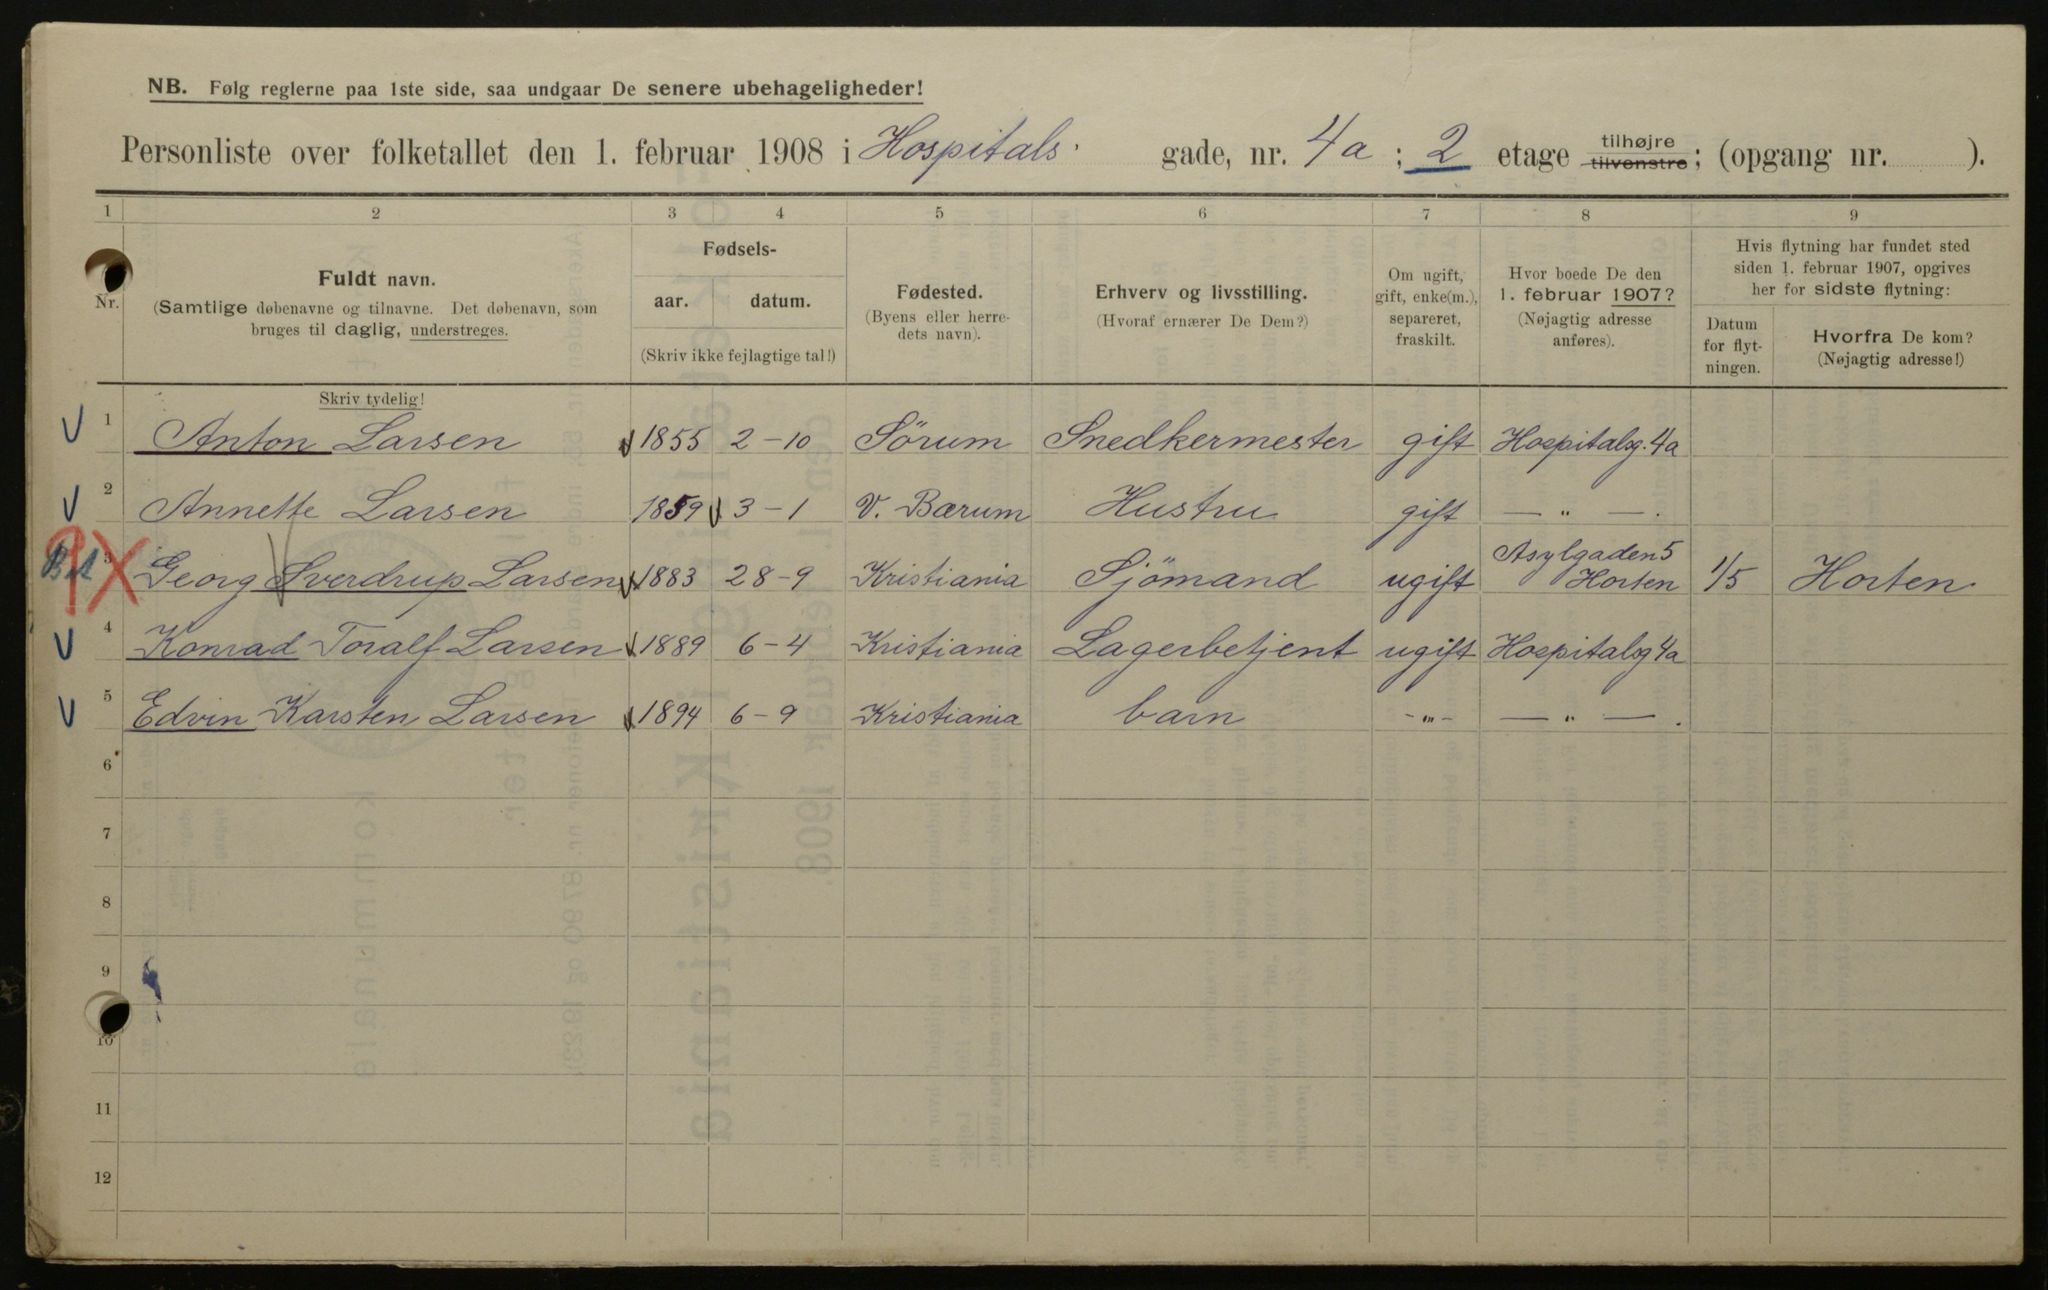 NB. Følg reglerne paa 1ste side, saa undgaar De senere ubehageligheder!
Personliste over folketallet den 1. februar 1908 i Hospitals gade, nr. 4a ; 2 etage tilhøjre tilvenstre ; (opgang nr. ).
1 2 3 4 5 6 7 8 9
Nr.
Fuldt navn.
(Samtlige døbenavne og tilnavne. Det døbenavn, som
bruges til daglig, understreges.
Skriv tydelig!
Fødsels-
aar. datum.
(Skriv ikke fejlagtige tal!)
Fødested.
(Byens eller herre-
dets navn).
Erhverv og livsstilling.
(Hvoraf ernærer De Dem?)
Om ugift,
gift, enke(m.),
separeret,
fraskilt.
Hvor boede De den
1. februar 1907?
(Nøjagtig adresse
anføres).
Hvis flytning har fundet sted
siden 1. februar 1907, opgives
her for sidste flytning:
Datum
for flyt-
ningen.
Hvorfra De kom?
(Nøjagtig adresse!)
1 Anton Larsen 1855 2-10 Sörum Snedkermester gift Hospitalsg. 4a
2 Annette Larsen 1859 3-1 V. Bærum Hustru gift — „ —.
3 Georg Sverdrup Larsen 1883 28-9 Kristiania Sjömand ugift Asylgaden 5 Horten 1/5 Horten
4 Konrad Toralf Larsen 1889 6-4 Kristiania Lagerbetjent ugift Hospitalsg 4a
5 Edvin Karsten Larsen 1894 6-9 Kristiania barn -„- — „ —.
6
7
8
9
10
11
12